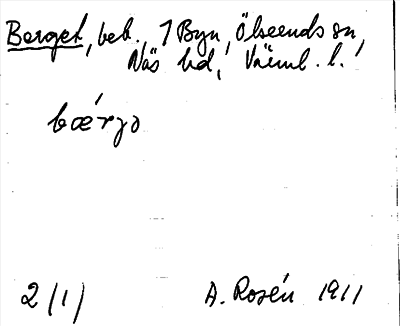 Berget, beb., 1 Byn, Ölseruds sn,
Näs hd, Värml. l.
bærjo
2 (1) A. Rosén 1911